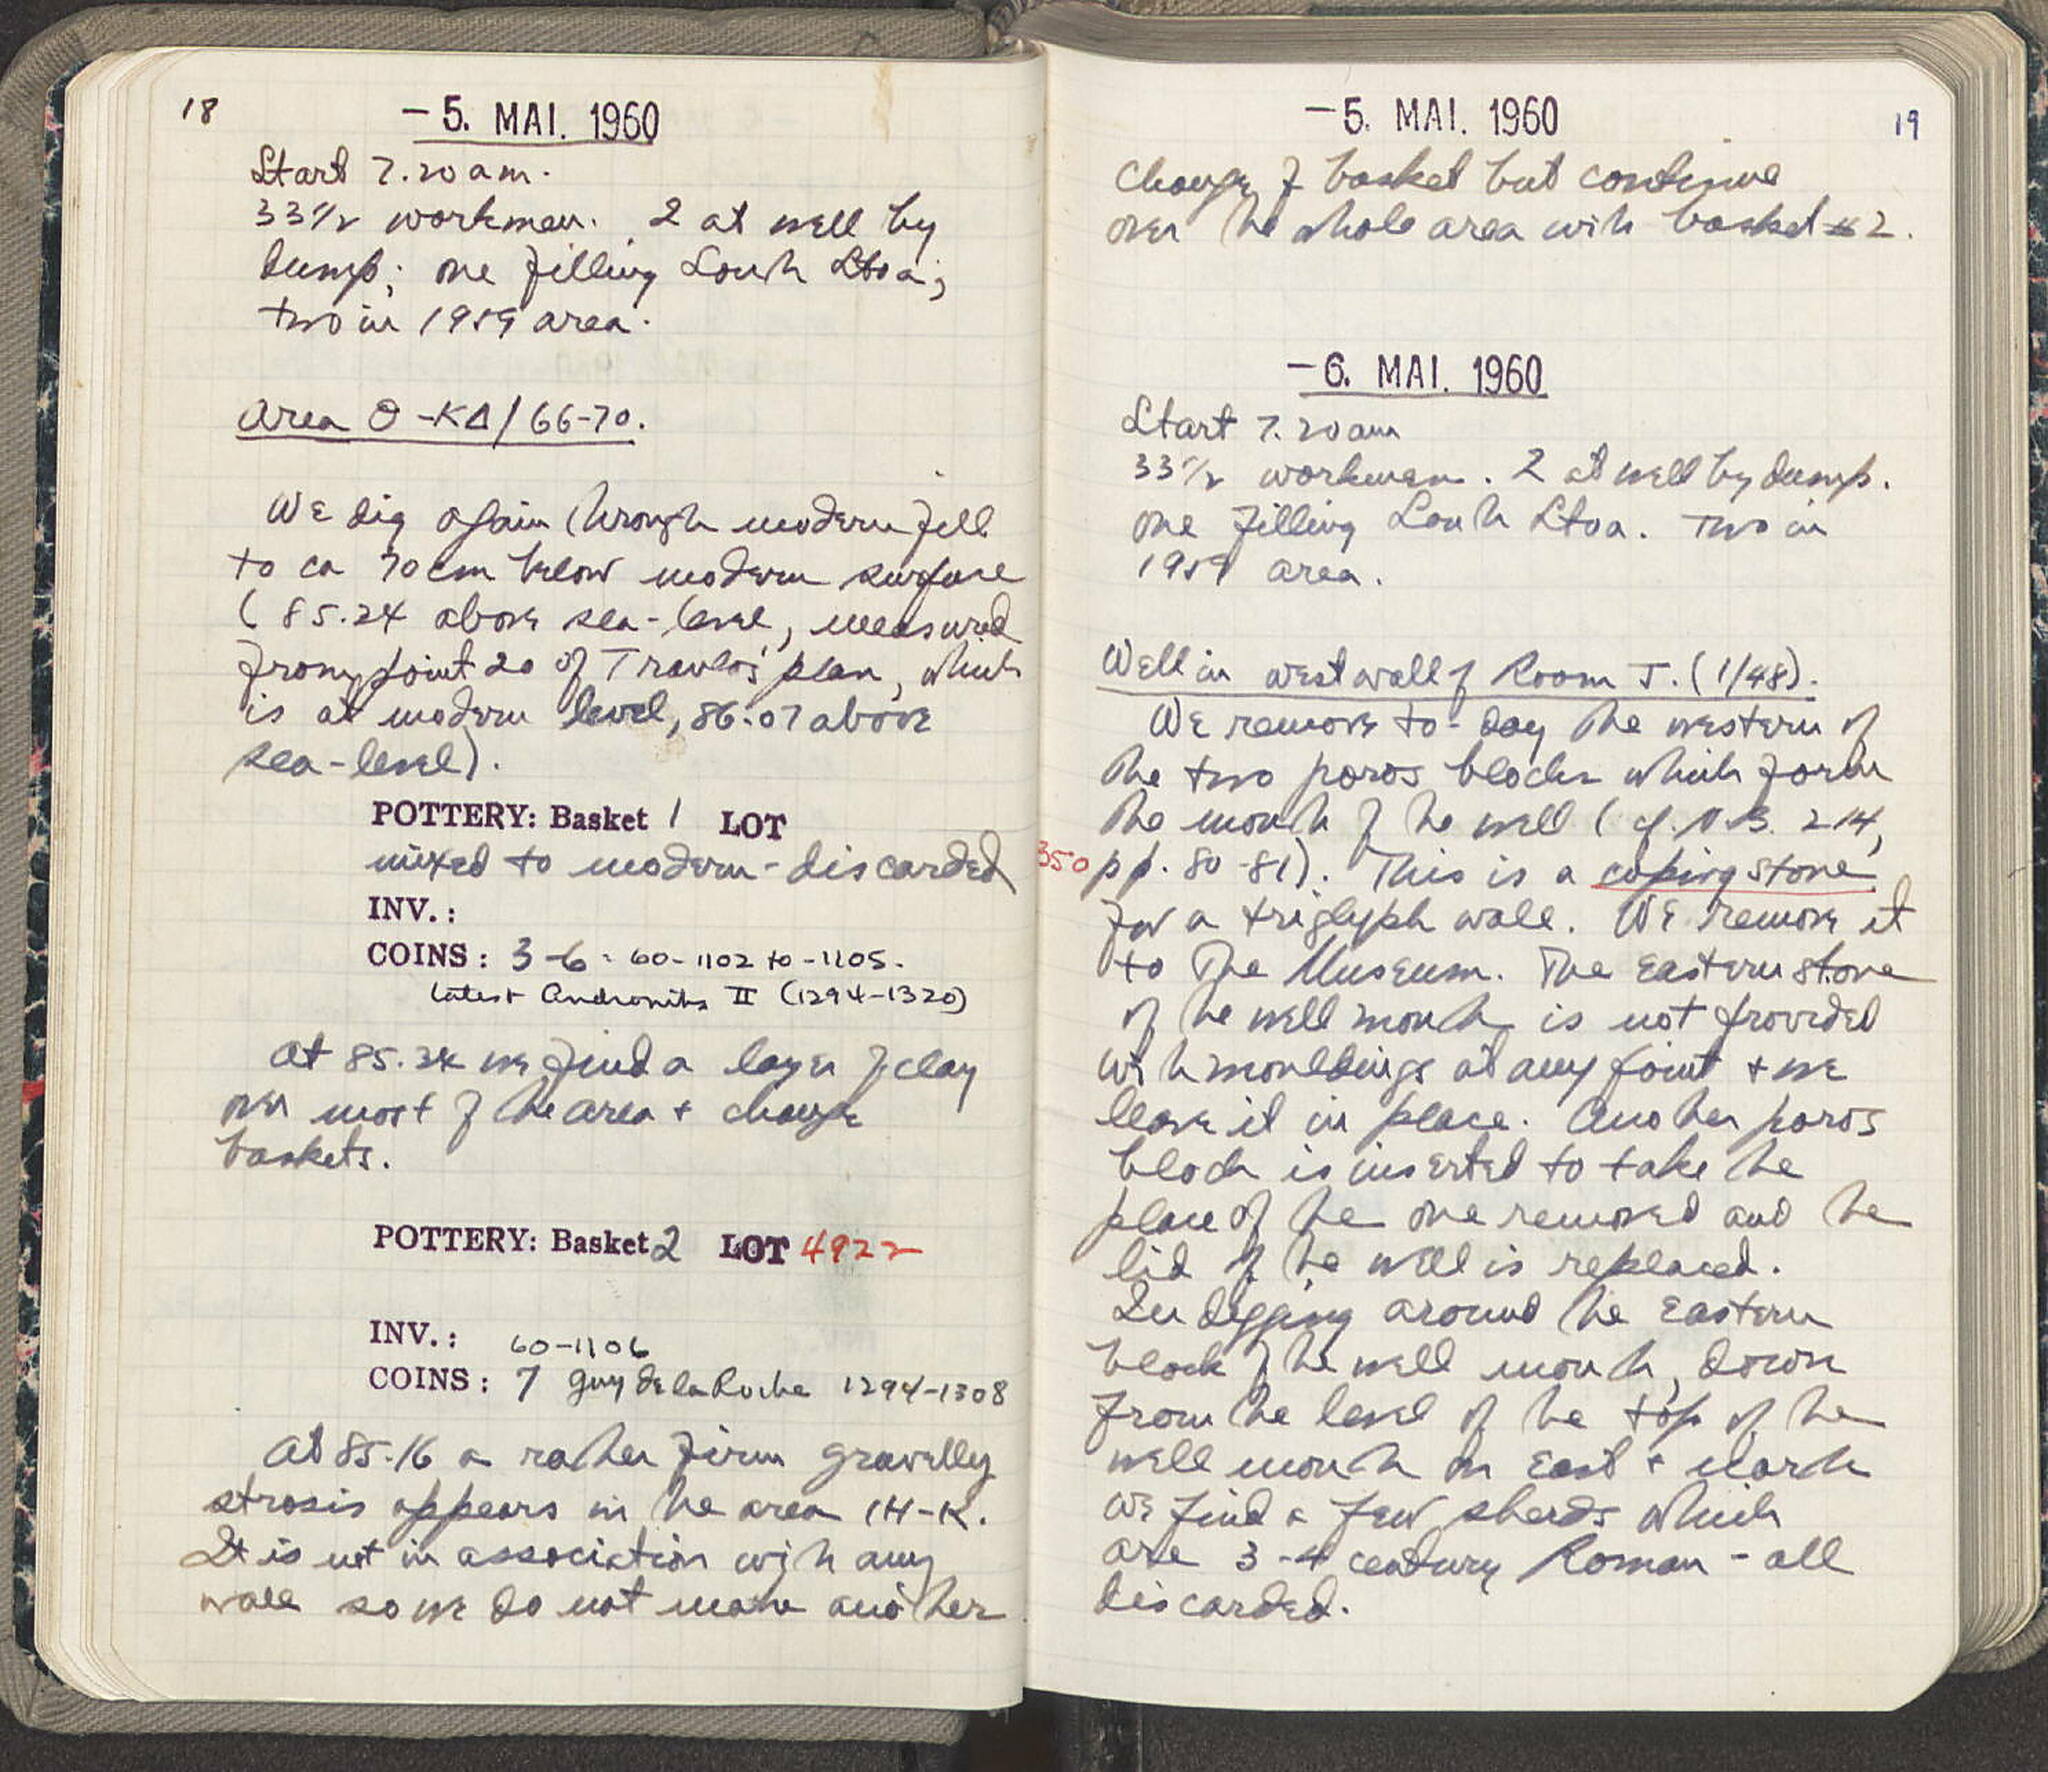 18
-5. MAI. 1960
Start 7.20 am.
33 1/2 workmen. 2 at well by
dump; one filling South Stoa;
two in 1959 area.
Area Θ-ΚΔ/66-70.
We dig again through modern fill
to ca 70 cm below modern surface
(85.24 above sea-level, measured
from point 20 of Travlos' plan, which
is at modern level, 86.07 above
sea-level).
POTTERY: Basket 1 LOT
mixed to modern - discarded
INV.:
COINS: 3-6. 60-1102 to -1105.
latest Andronikos II (1294-1320)
At 85.34 we find a layer of clay
over most of the area + change
baskets.
POTTERY: Basket 2 LOT 4922
INV.: 60-1106
COINS: 7 Guy de la Roche 1294-1308
At 85.16 a rather firm gravelly
strosis appears in the area ΙΗ-Κ.
It is not in association with any
wall so we do not make another
-5. MAI. 1960
19
change of basket but continue
over the whole area with basket #2.
-6. MAI. 1960
Start 7.20 am
33 1/2 workmen. 2 at well by dump.
one filling South Stoa. Two in
1959 area.
Well in west wall of Room J. (1/48).
We remove to-day the western of
the two poros blocks which form
the mouth of the well (cf. N.B. 214,
350 pp. 80-81). This is a coping stone
for a triglyph wall. We remove it
to the Museum. The eastern stone
of the well mouth is not provided
with mouldings at any point + we
leave it in place. Another poros
block is inserted to take the
place of the one removed and the
lid of the well is replaced.
In digging around the eastern
block of the well mouth, down
from the level of the top of the
well mouth on East + North
we find a few sherds which
are 3-4 century Roman - all
discarded.